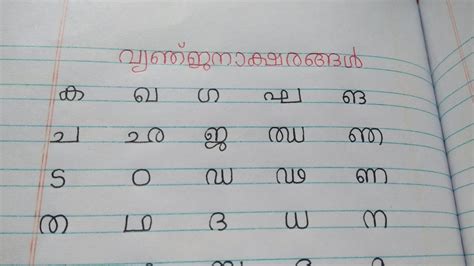 വ്യഞ്ജനാക്ഷരങ്ങൾ
ക ഖ ഗ ഘ ങ
ച ഛ ജ ഝ ഞ
ട ഠ ഡ ഢ ണ
ത ഥ ദ ധ ന